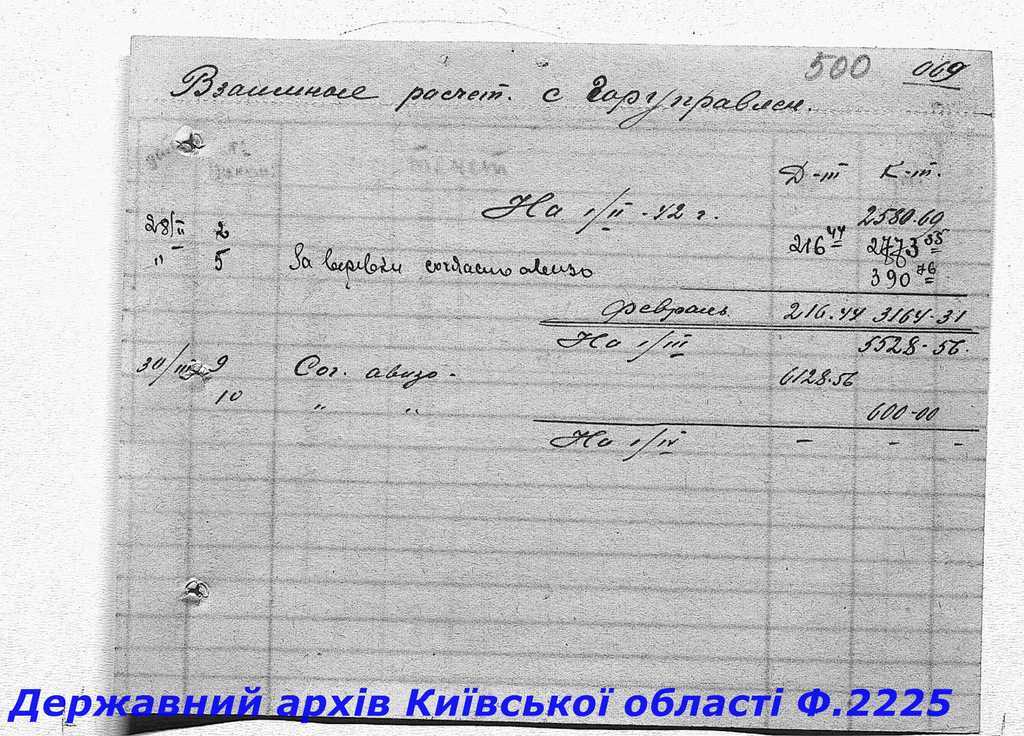 500 069
Взаимные расчет. с Горуправлен.
Д-т К-т.
На 1/II-42 г. 2580.69
28/II 2 216 44 2773 55
" 5 За веревки согласно авизо 390 76
февраль 216.44 3164-31
На 1/III 5528-56.
30/III 9 Сог. авизо - 6128.56
10 " " 600-00
На 1/IV - - -
Державний архів Київської області Ф.2225